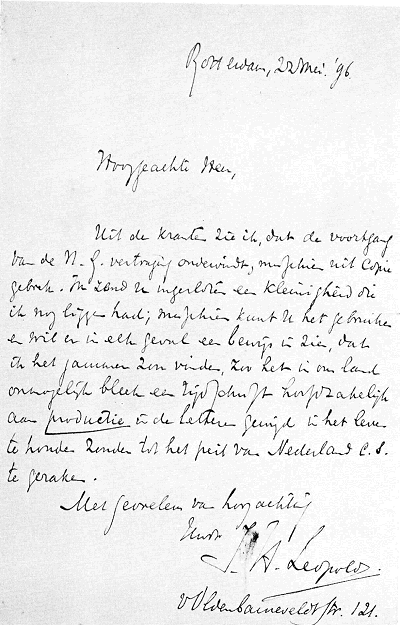 Rotterdam, 22 Mei. '96
Hooggeachte Heer,
Uit de kranten zie ik, dat de voortgang
van de N. G. vertraging ondervindt, misschien uit Copie
gebrek. Ik zend U ingesloten een kleinigheid die
ik nog liggen had; misschien kunt U het gebruiken
en wil er in elk geval een bewijs in zien, dat
ik het jammer zou vinden, zoo het in ons land
onmogelijk bleek een tijdschrift hoofdzakelijk
aan productie in de letteren gewijd in het leven
te houden zonder tot het peil van Nederland c.s.
te geraken.
Met gevoelens van hoogachting
J. H. Leopold.
v Oldenbarneveldtstr. 121.